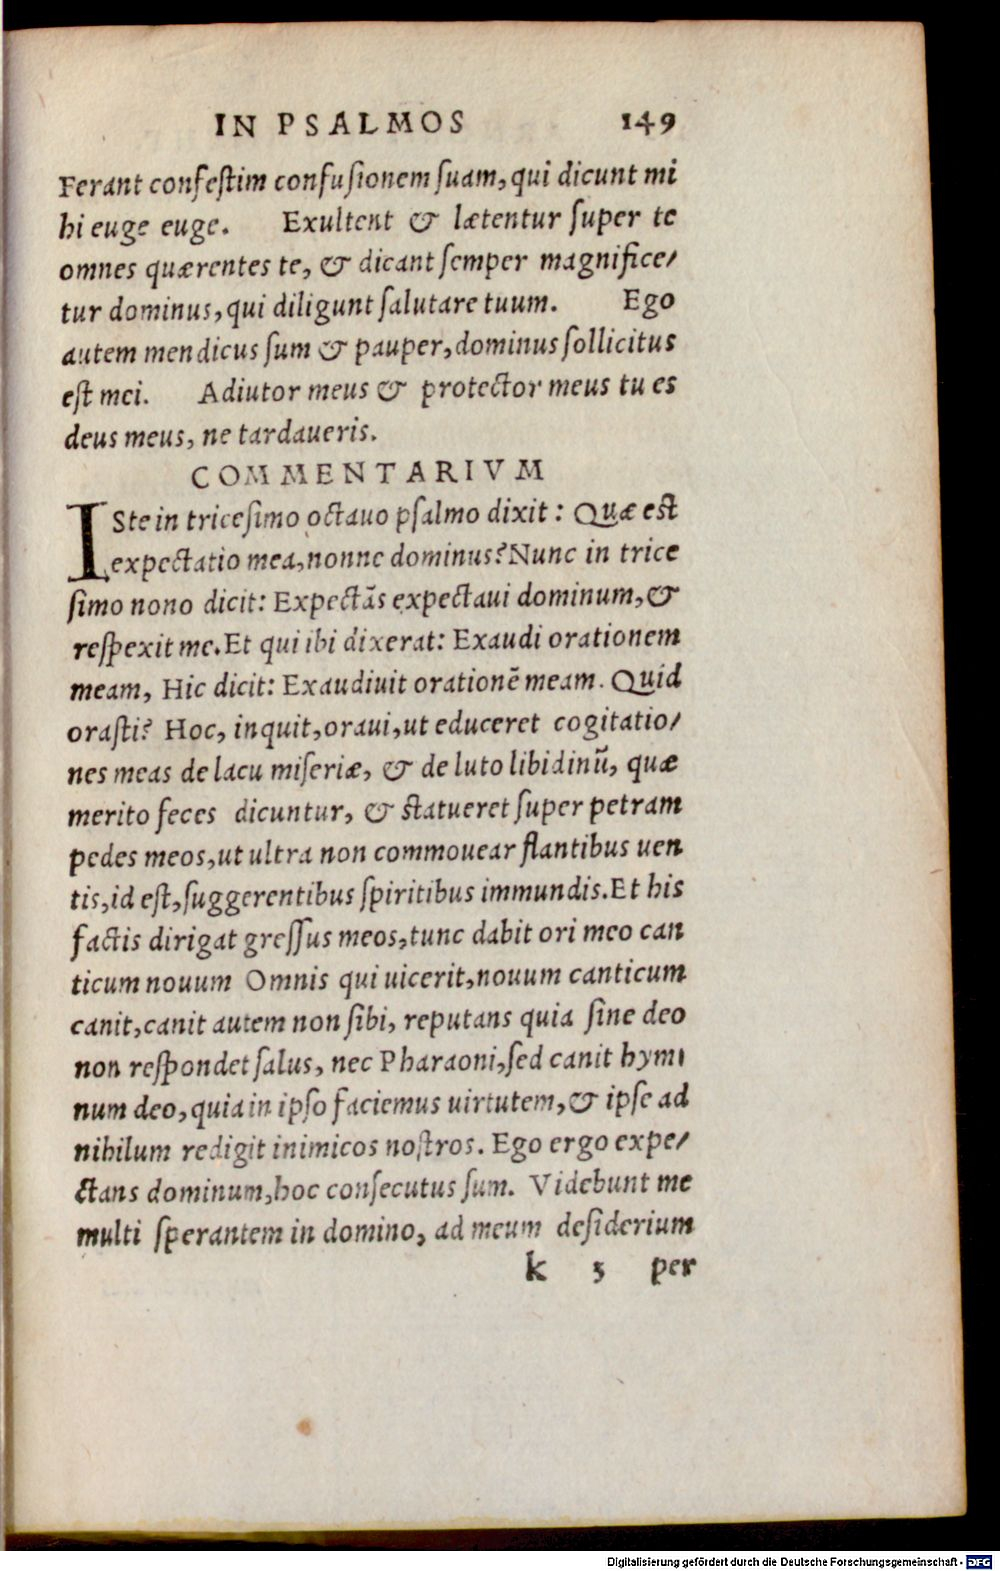 IN PSALMOS 149
Ferant confestim confusionem suam, qui dicunt mi
hi euge euge. Exultent & lætentur super te
omnes quærentes te, & dicant semper magnifice/
tur dominus, qui diligunt salutare tuum. Ego
autem mendicus sum & pauper, dominus sollicitus
est mei. Adiutor meus & protector meus tu es
deus meus, ne tardaueris.
COMMENTARIVM
ISte in tricesimo octauo psalmo dixit: Quæ est
expectatio mea, nonne dominus? Nunc in trice
simo nono dicit: Expectãs expectaui dominum, &
respexit me. Et qui ibi dixerat: Exaudi orationem
meam, Hic dicit: Exaudiuit orationẽ meam. Quid
orasti? Hoc, inquit, oraui, ut educeret cogitatio/
nes meas de lacu miseriæ, & de luto libidinũ, quæ
merito feces dicuntur, & statueret super petram
pedes meos, ut ultra non commouear flantibus uen
tis, id est, suggerentibus spiritibus immundis. Et his
factis dirigat gressus meos, tunc dabit ori meo can
ticum nouum Omnis qui uicerit, nouum canticum
canit, canit autem non sibi, reputans quia sine deo
non respondet salus, nec Pharaoni, sed canit hym
num deo, quia in ipso faciemus uirtutem, & ipse ad
nihilum redigit inimicos nostros. Ego ergo expe/
ctans dominum, hoc consecutus sum. Videbunt me
multi sperantem in domino, ad meum desiderium
k 5 per
Digitalisierung gefördert durch die Deutsche Forschungsgemeinschaft - DFG